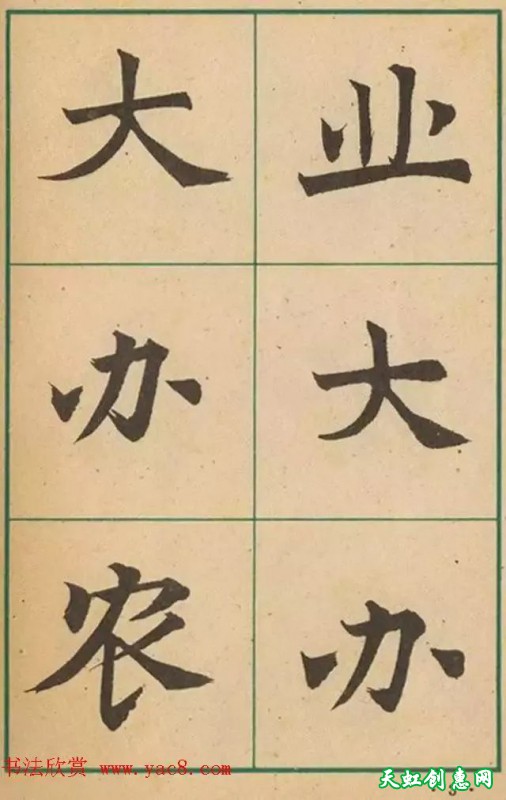 业大办
大办农
书法欣赏 www.yac8.com
天虹创惠网